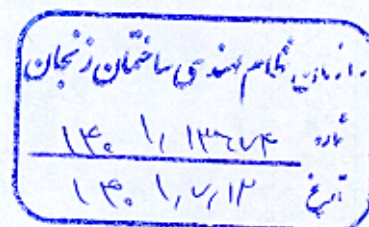 سازمان نظام مهندسی ساختمان زنجان
شماره ۱۴۰۱/۱۳۶۷۴
تاریخ ۱۴۰۱/۷/۱۳